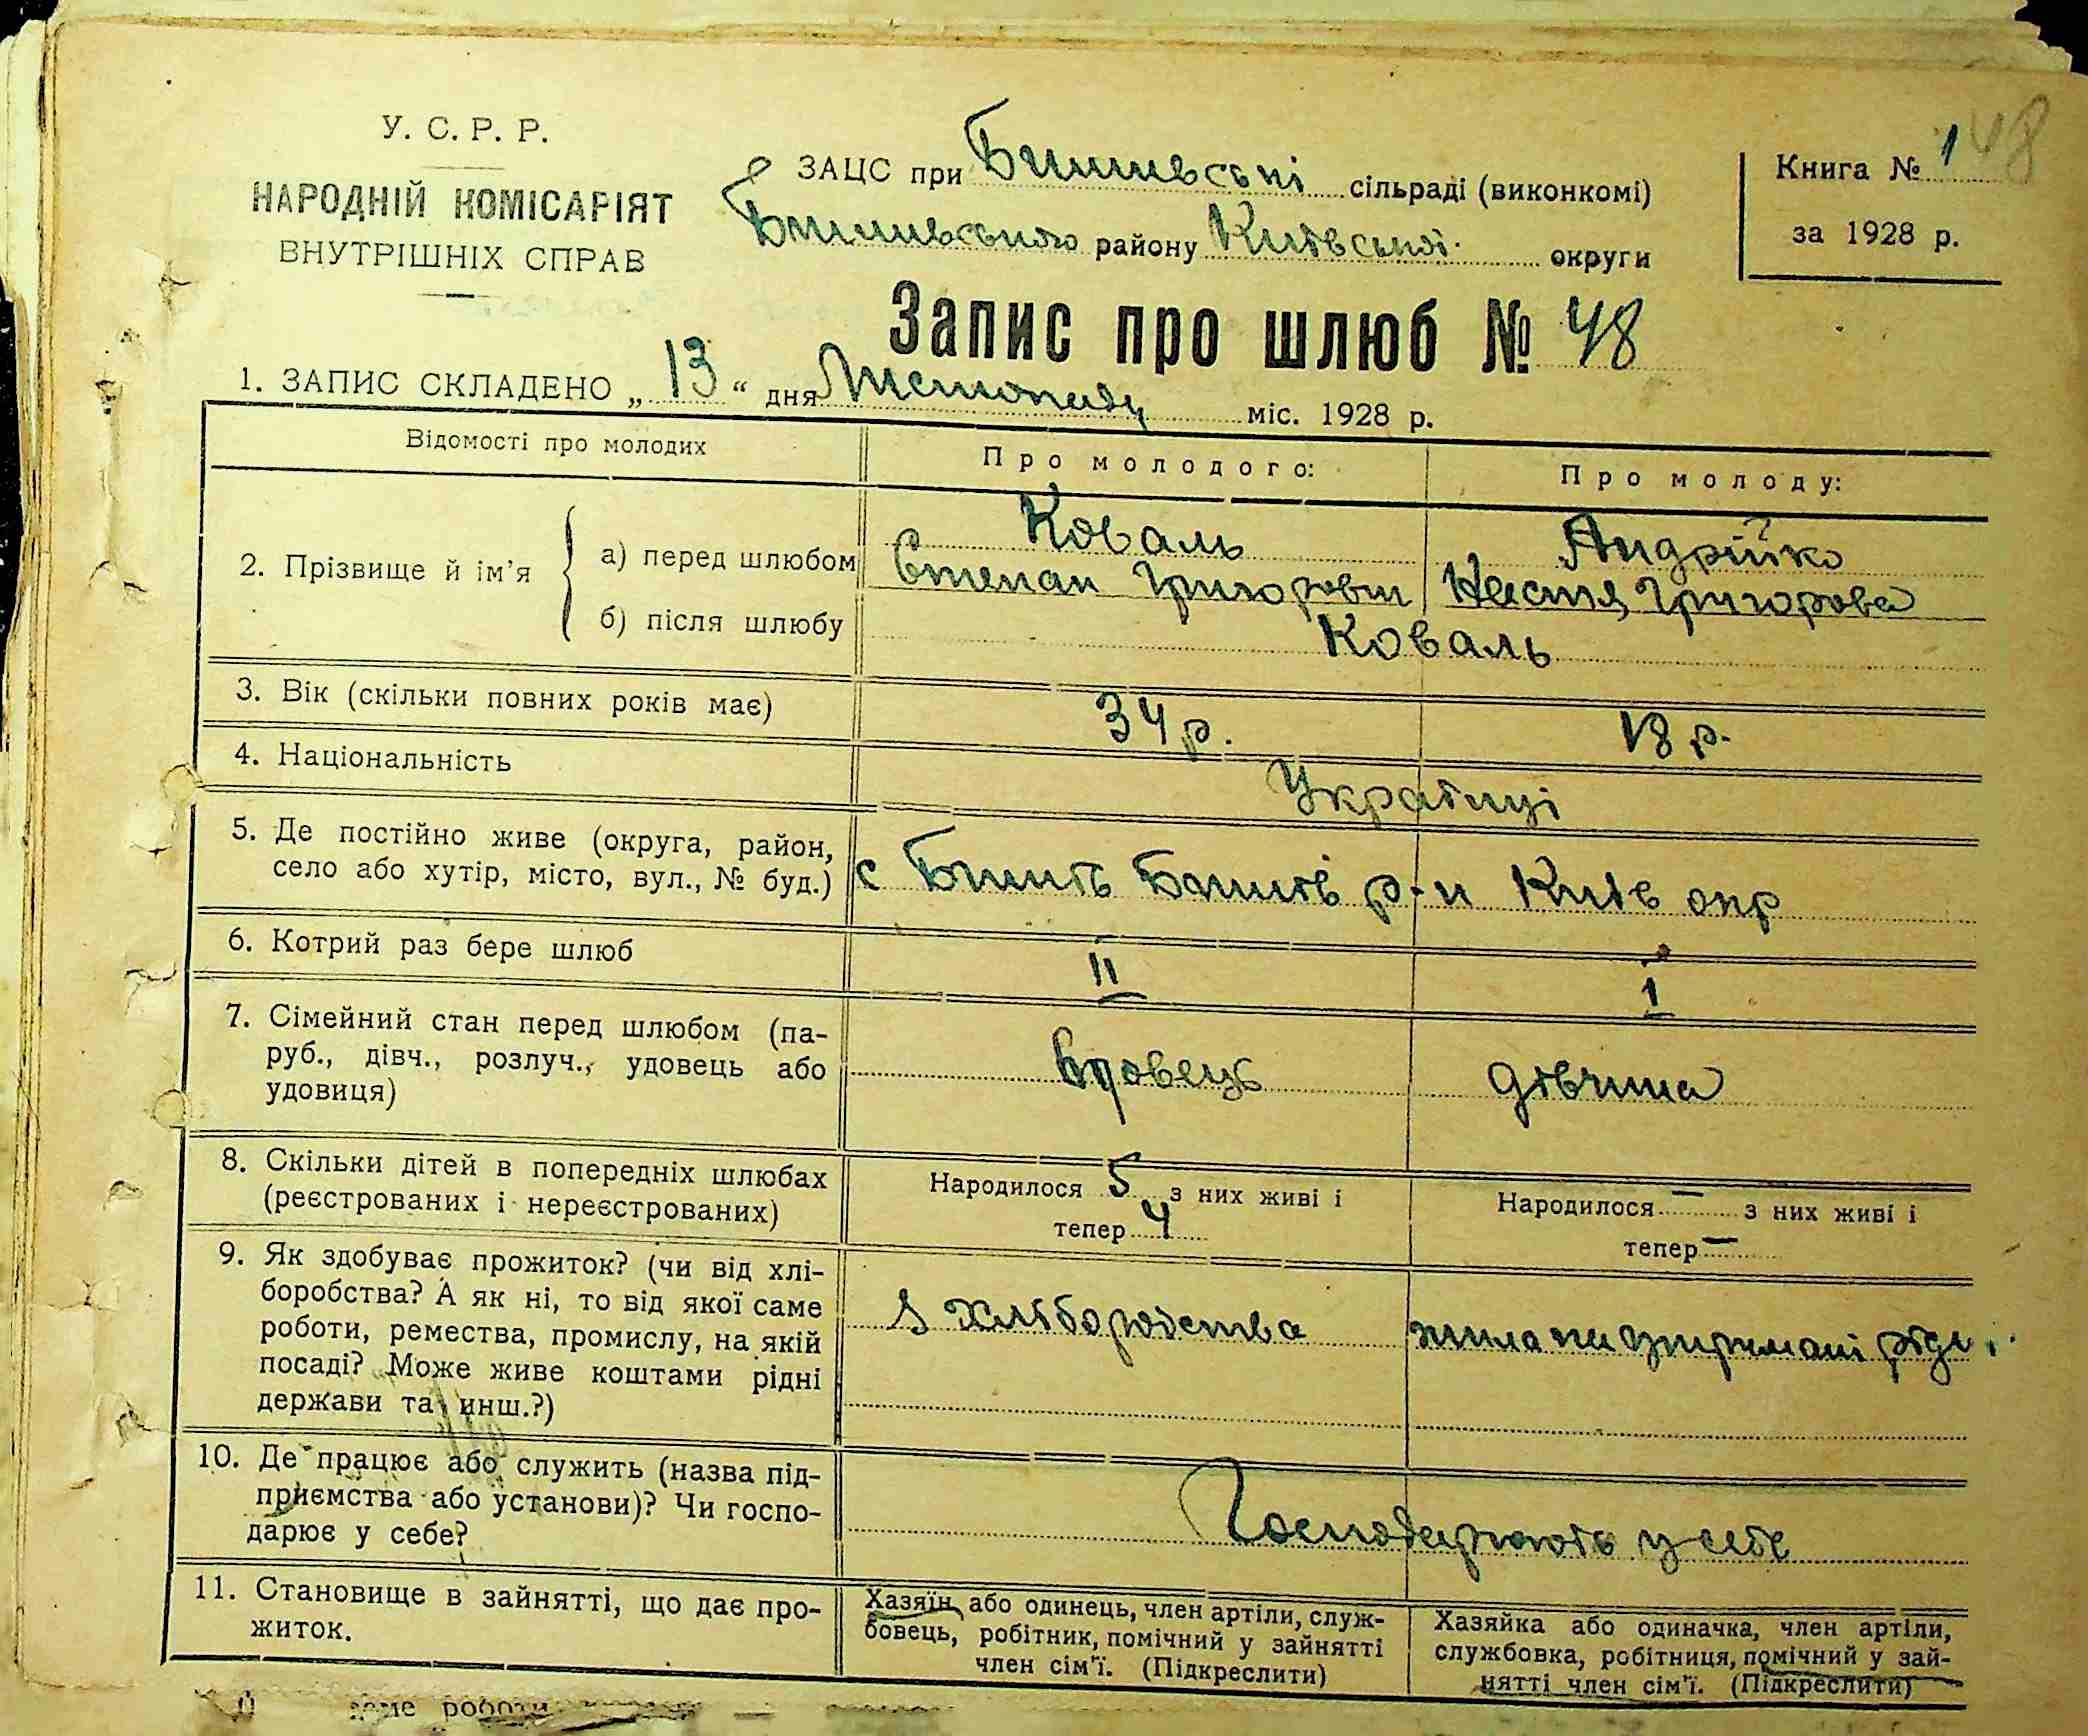 48
У. С. Р. Р.
НАРОДНІЙ КОМІСАРІЯТ
ВНУТРІШНІХ СПРАВ
ЗАЦС при Бишивські сільраді (виконкомі)
Бишивського району Київської округи
Книга № 1
за 1928 р.
Запис про шлюб № 48
1. ЗАПИС СКЛАДЕНО „ 13 “ дня Листопаду міс. 1928 р.
Відомості про молодих
Про молодого:
Про молоду:
2. Прізвище й ім'я
а) перед шлюбом
Коваль
Степан Григорови
Андрійко
Настя Григорова
б) після шлюбу
Коваль
3. Вік (скільки повних років має)
34 р.
18 р.
4. Національність
Українці
5. Де постійно живе (округа, район,
село або хутір, місто, вул., № буд.)
с Бишів Бишів р-н Київ окр
6. Котрий раз бере шлюб
II
1
7. Сімейний стан перед шлюбом (па-
руб., дівч., розлуч., удовець або
удовиця)
вдовець
дівчина
8. Скільки дітей в попередніх шлюбах
(реєстрованих і нереєстрованих)
Народилося 5 з них живі і
тепер 4
Народилося — з них живі і
тепер —
9. Як здобуває прожиток? (чи від хлі-
боробства? А як ні, то від якої саме
роботи, ремества, промислу, на якій
посаді? Може живе коштами рідні
держави та инш.?)
з хліборобства
жила на утримані рідн
10. Де працює або служить (назва під-
приємства або установи)? Чи госпо-
дарює у себе?
Господарюють у себе
11. Становище в зайнятті, що дає про-
житок.
Хазяїн або одинець, член артіли, служ-
бовець, робітник, помічний у зайнятті
член сім'ї. (Підкреслити)
Хазяйка або одиначка, член артіли,
службовка, робітниця, помічний у зай-
нятті член сім'ї. (Підкреслити)
роботи